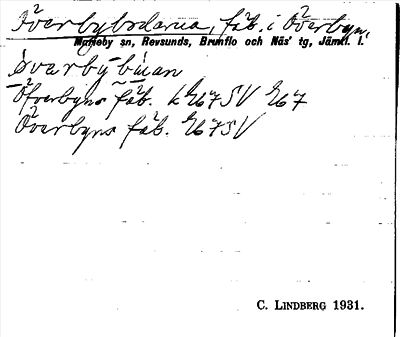 Överbybodarna, fäb. i Överbyn,
Matteby sn, Revsunds, Brunflo och Näs' tg, Jämtl. l.
òvarby-buan
Öfverbyns fäb. k
Överbyns fäb.
C. LINDBERG 1931.